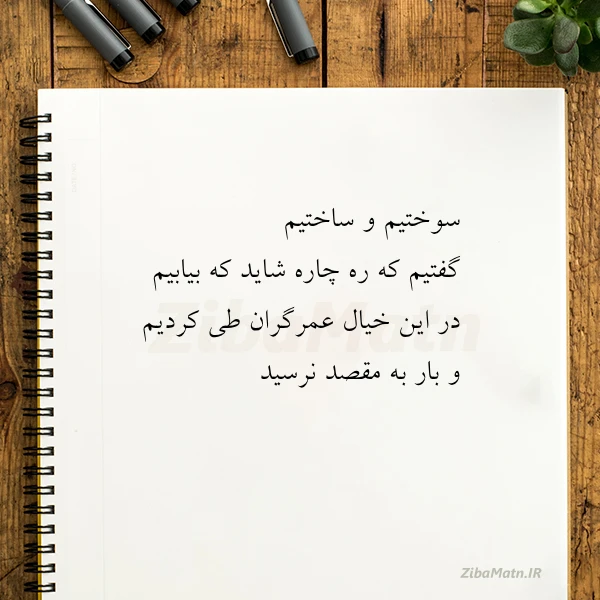 سوختیم و ساختیم
گفتیم که ره چاره شاید که بیابیم
در این خیال عمرگران طی کردیم
و بار به مقصد نرسید
ZibaMatn
ZibaMatn.IR